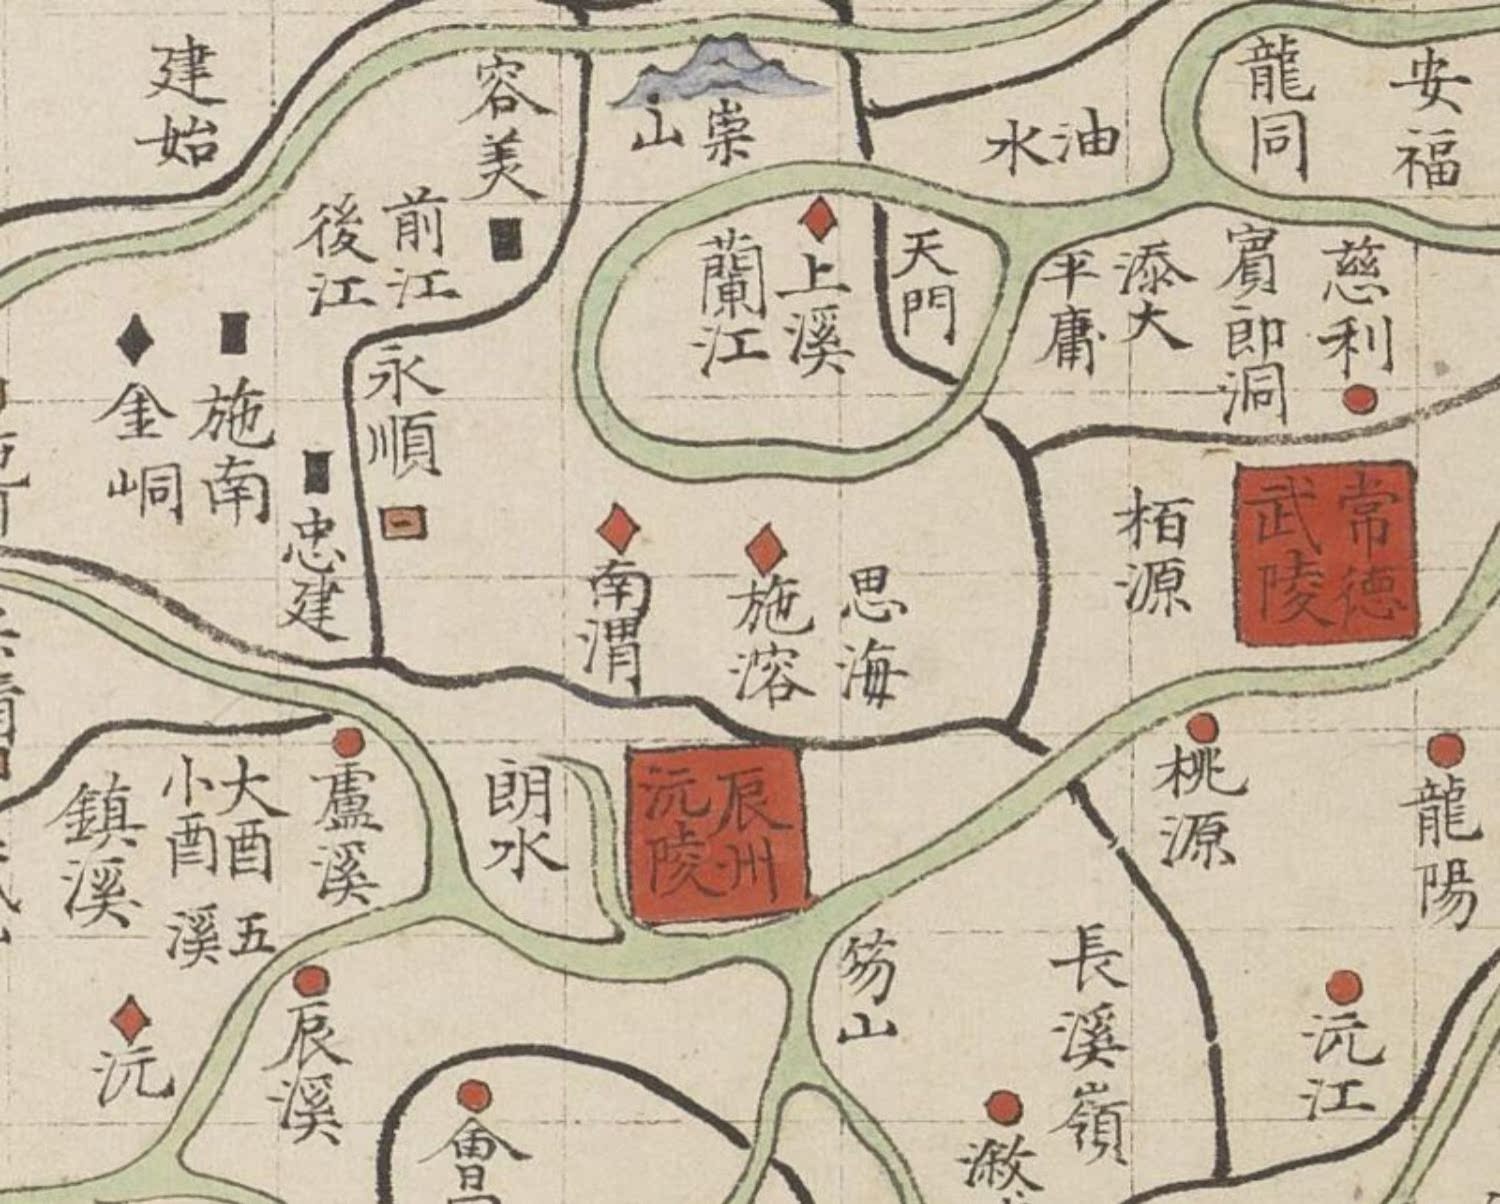 建始
容美
崇山
油水
龍同
安福
前江
後江
蘭江
上溪
天門
平庸
添大
賔即洞
慈利
金峒
施南
忠建
永順
南渭
施溶
思海
栢源
常德
武陵
鎮溪
大酉
小酉
五溪
盧溪
朗水
辰州
沅陵
桃源
龍陽
沅
辰溪
會
山
長溪嶺
沅江
溆